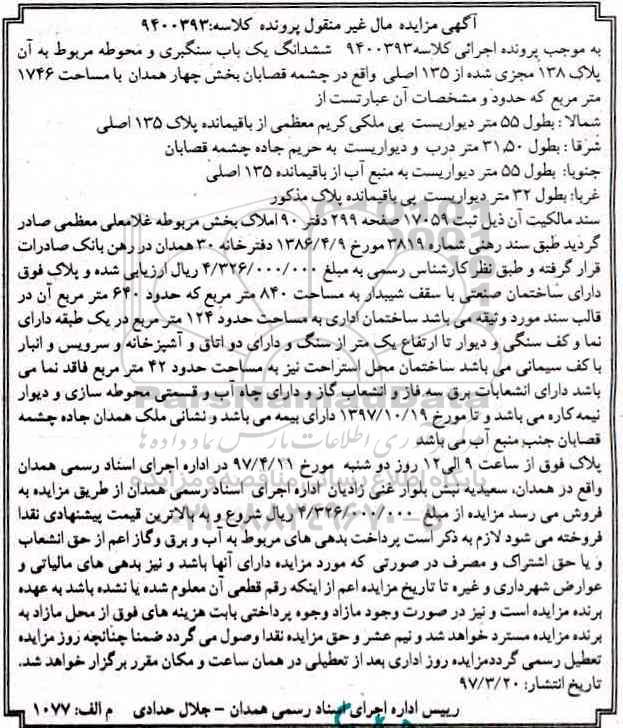 آگهی مزایده مال غیر منقول پرونده کلاسه:۹۴۰۰۳۹۳
به موجب پرونده اجرائی کلاسه۹۴۰۰۳۹۳ ششدانگ یک باب سنگبری و محوطه مربوط به آن
پلاک ۱۳۸ مجزی شده از ۱۳۵ اصلی واقع در چشمه قصابان بخش چهار همدان با مساحت ۱۷۴۶
متر مربع که حدود و مشخصات آن عبارتست از
شمالا : بطول ۵۵ متر دیواریست پی ملکی کریم معظمی از باقیمانده پلاک ۱۳۵ اصلی
شرقا : بطول ۳۱,۵۰ متر درب و دیواریست به حریم جاده چشمه قصابان
جنوبا: بطول ۵۵ متر دیواریست به منبع آب از باقیمانده ۱۳۵ اصلی
غربا: بطول ۳۲ متر دیواریست پی باقیمانده پلاک مذکور
سند مالکیت آن ذیل ثبت ۱۷۰۵۹ صفحه ۲۹۹ دفتر ۹۰ املاک بخش مربوطه غلامعلی معظمی صادر
گردید طبق سند رهنی شماره ۳۸۱۹ مورخ ۱۳۸۶/۴/۹ دفترخانه ۳۰ همدان در رهن بانک صادرات
قرار گرفته و طبق نظر کارشناس رسمی به مبلغ ۴/۳۲۶/۰۰۰/۰۰۰ ریال ارزیابی شده و پلاک فوق
دارای ساختمان صنعتی با سقف شیبدار به مساحت ۸۴۰ متر مربع که حدود ۶۴۰ متر مربع آن در
قالب سند مورد وثیقه می باشد ساختمان اداری به مساحت حدود ۱۲۴ متر مربع در یک طبقه دارای
نما و کف سنگی و دیوار تا ارتفاع یک متر از سنگ و دارای دو اتاق و آشپزخانه و سرویس و انبار
با کف سیمانی می باشد ساختمان محل استراحت نیز به مساحت حدود ۴۲ متر مربع فاقد نما می
باشد دارای انشعابات برق سه فاز و انشعاب گاز و دارای چاه آب و قسمتی محوطه سازی و دیوار
نیمه کاره می باشد و تا مورخ ۱۳۹۷/۱۰/۱۹ دارای بیمه می باشد و نشانی ملک همدان جاده چشمه
قصابان جنب منبع آب می باشد
پلاک فوق از ساعت ۹ الی۱۲ روز دو شنبه مورخ ۹۷/۴/۱۱ در اداره اجرای اسناد رسمی همدان
واقع در همدان، سعیدیه نبش بلوار غنی زادیان اداره اجرای اسناد رسمی همدان از طریق مزایده به
فروش می رسد مزایده از مبلغ ۴/۳۲۶/۰۰۰/۰۰۰ ریال شروع و به بالاترین قیمت پیشنهادی نقدا
فروخته می شود لازم به ذکر است پرداخت بدهی های مربوط به آب و برق وگاز اعم از حق انشعاب
و یا حق اشتراک و مصرف در صورتی که مورد مزایده دارای آنها باشد و نیز بدهی های مالیاتی و
عوارض شهرداری و غیره تا تاریخ مزایده اعم از اینکه رقم قطعی آن معلوم شده یا نشده باشد به عهده
برنده مزایده است و نیز در صورت وجود مازاد وجوه پرداختی بابت هزینه های فوق از محل مازاد به
برنده مزایده مسترد خواهد شد و نیم عشر و حق مزایده نقدا وصول می گردد ضمنا چنانچه روز مزایده
تعطیل رسمی گرددمزایده روز اداری بعد از تعطیلی در همان ساعت و مکان مقرر برگزار خواهد شد.
تاریخ انتشار: ۹۷/۳/۲۰
رییس اداره اجرای اسناد رسمی همدان - جلال حدادی م الف: ۱۰۷۷